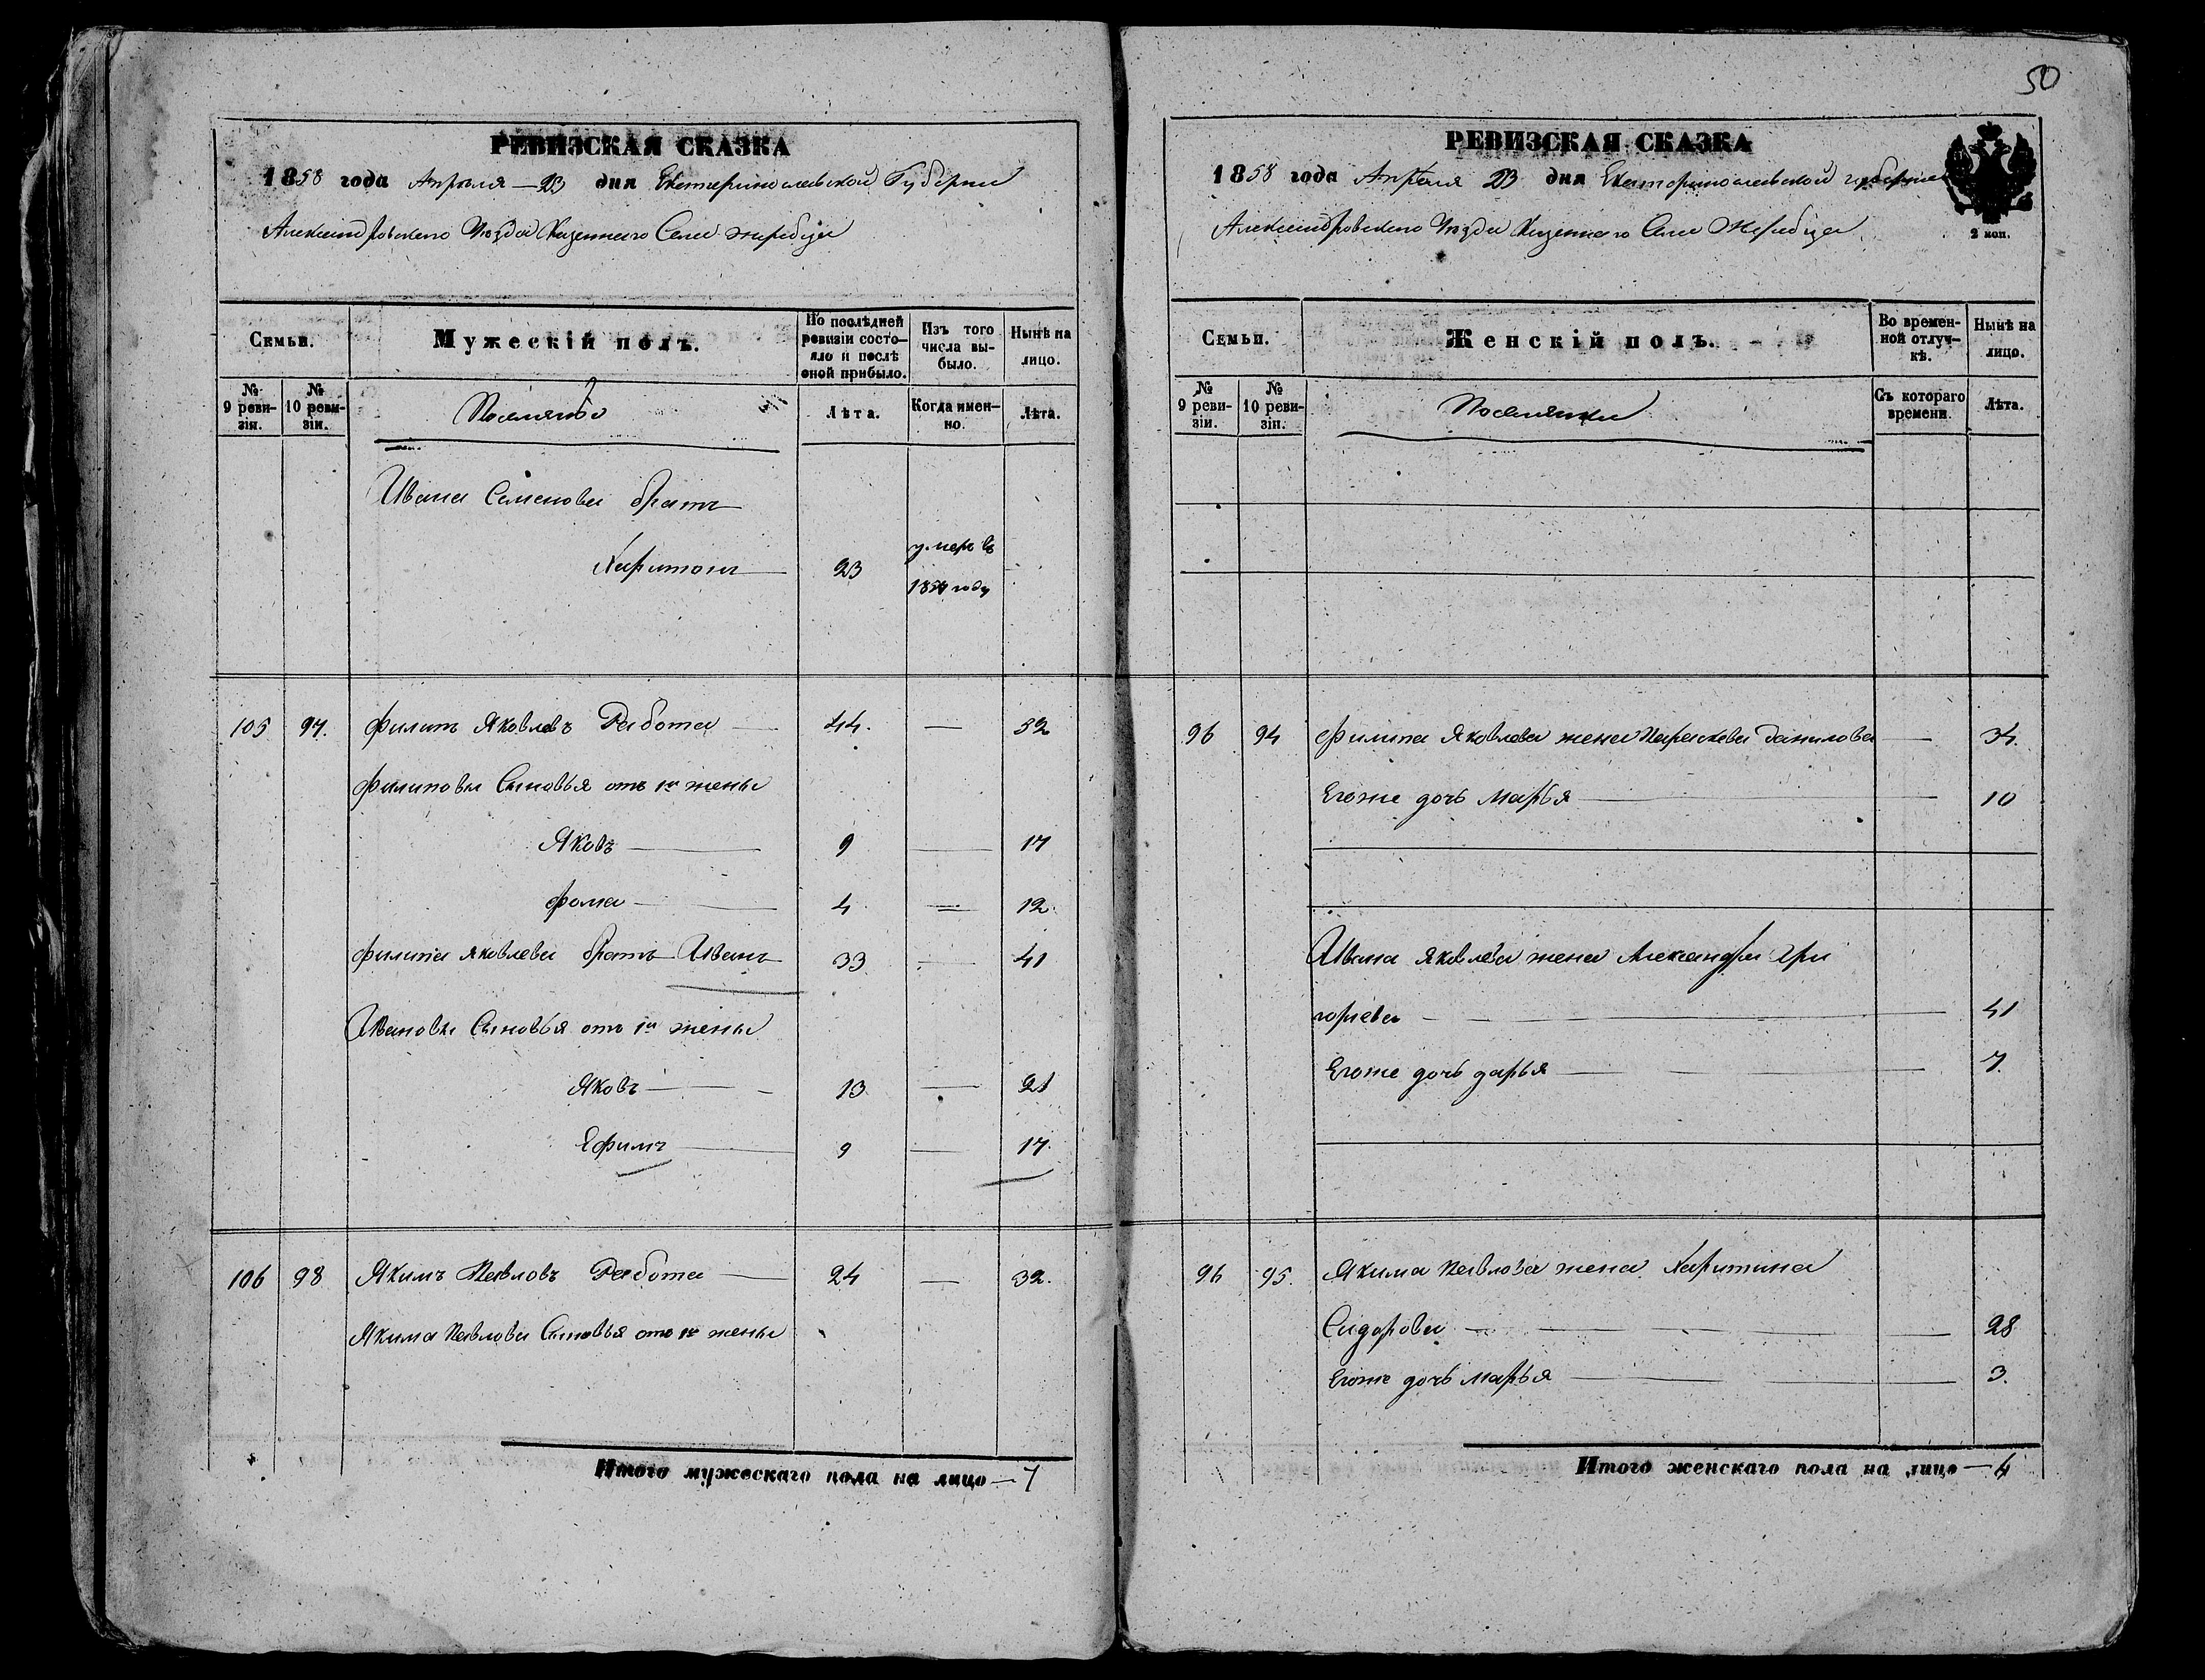 50
РЕВИЗСКАЯ СКАЗКА
1858 года Апрѣля 23 дня Екатеринославской Губерни
Александровскаго Уѣзда Казеннаго Села Жеребца
Семьи.
Мужескій полъ.
По послѣдней ревизіи состояло и послѣ оной прибыло.
Изъ того числа выбыло.
Нынѣ на лицо.
№ 9 ревизія.
№ 10 ревизіи.
Поселянъ
Лѣта.
Когда именно.
Лѣта.
Ивана Семенова братъ
Харитонъ 23 умеръ въ
году
105 97. Филипъ Яковлевъ Работа 44. — 52
Филиповы Сыновья отъ 1й жены
Яковъ 9 — 17
Фома 4 — 12
Филипа Яковлева братъ Иванъ 33 — 41
Ивановы Сыновья отъ 1й жены
Яковъ 13 — 21
Ефимъ 9 — 17.
106 98 Якимъ Павловъ Работа 24 — 32.
Якима Павлова Сыновья отъ 1й жены
Итого мужескаго пола на лицо — 7
РЕВИЗСКАЯ СКАЗКА
1858 года Апрѣля 23 дня Екатеринославской губернии
Александровскаго Уѣзда Казеннаго Села Жеребца
2 коп.
Семьи.
Женскій полъ.
Во временной отлучкѣ.
Нынѣ на лицо.
№ 9 ревизіи.
№ 10 ревизіи.
Поселянки
Съ котораго времени.
Лѣта.
96 94 Филипа Яковлева жена Параскева Данилова — 34.
Егоже дочь Марья — 10
Ивана Яковлева жена Александра Гри
горьева — 41
Егоже дочь дарья — 7.
96 95. Якима Павлова жена Харитина
Сидорова — 28
Егоже дочь Марья — 3.
Итого женскаго пола на лицо — 4